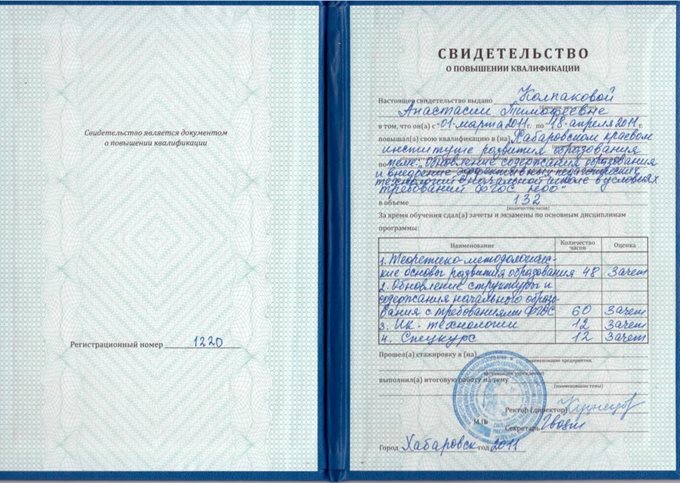 Свидетельство является документом
о повышении квалификации
Регистрационный номер 1220
СВИДЕТЕЛЬСТВО
О ПОВЫШЕНИИ КВАЛИФИКАЦИИ
Настоящее свидетельство выдано Колпаковой
Анастасии Тимофеевне
в том, что он(а) с «01» марта 2011 г. по «18» апреля 2011 г.
повышал(а) свою квалификацию в (на) Хабаровском краевом
институте развития образования
по теме: "Обновление содержания образования
и внедрение эффективных педагогических
технологий в начальной школе в условиях
требований ФГОС НОО"
в объеме 132
(количество часов)
За время обучения сдал(а) зачеты и экзамены по основным дисциплинам
программы:
Наименование Количество часов Оценка
1. Теоретико-методологичес-
кие основы развития образования 48 Зачет
2. Обновление структуры и
содержания начального образо-
вания с требованиями ФГОС 60 Зачет
3. Ик. технологии 12 Зачет
4. Спецкурс 12 Зачет
Прошел(а) стажировку в (на)
(наименование предприятия,
выполнил(а) итоговую работу на тему
(наименование темы)
Ректор (директор)
М.П.
Секретарь
Город Хабаровск год 2011